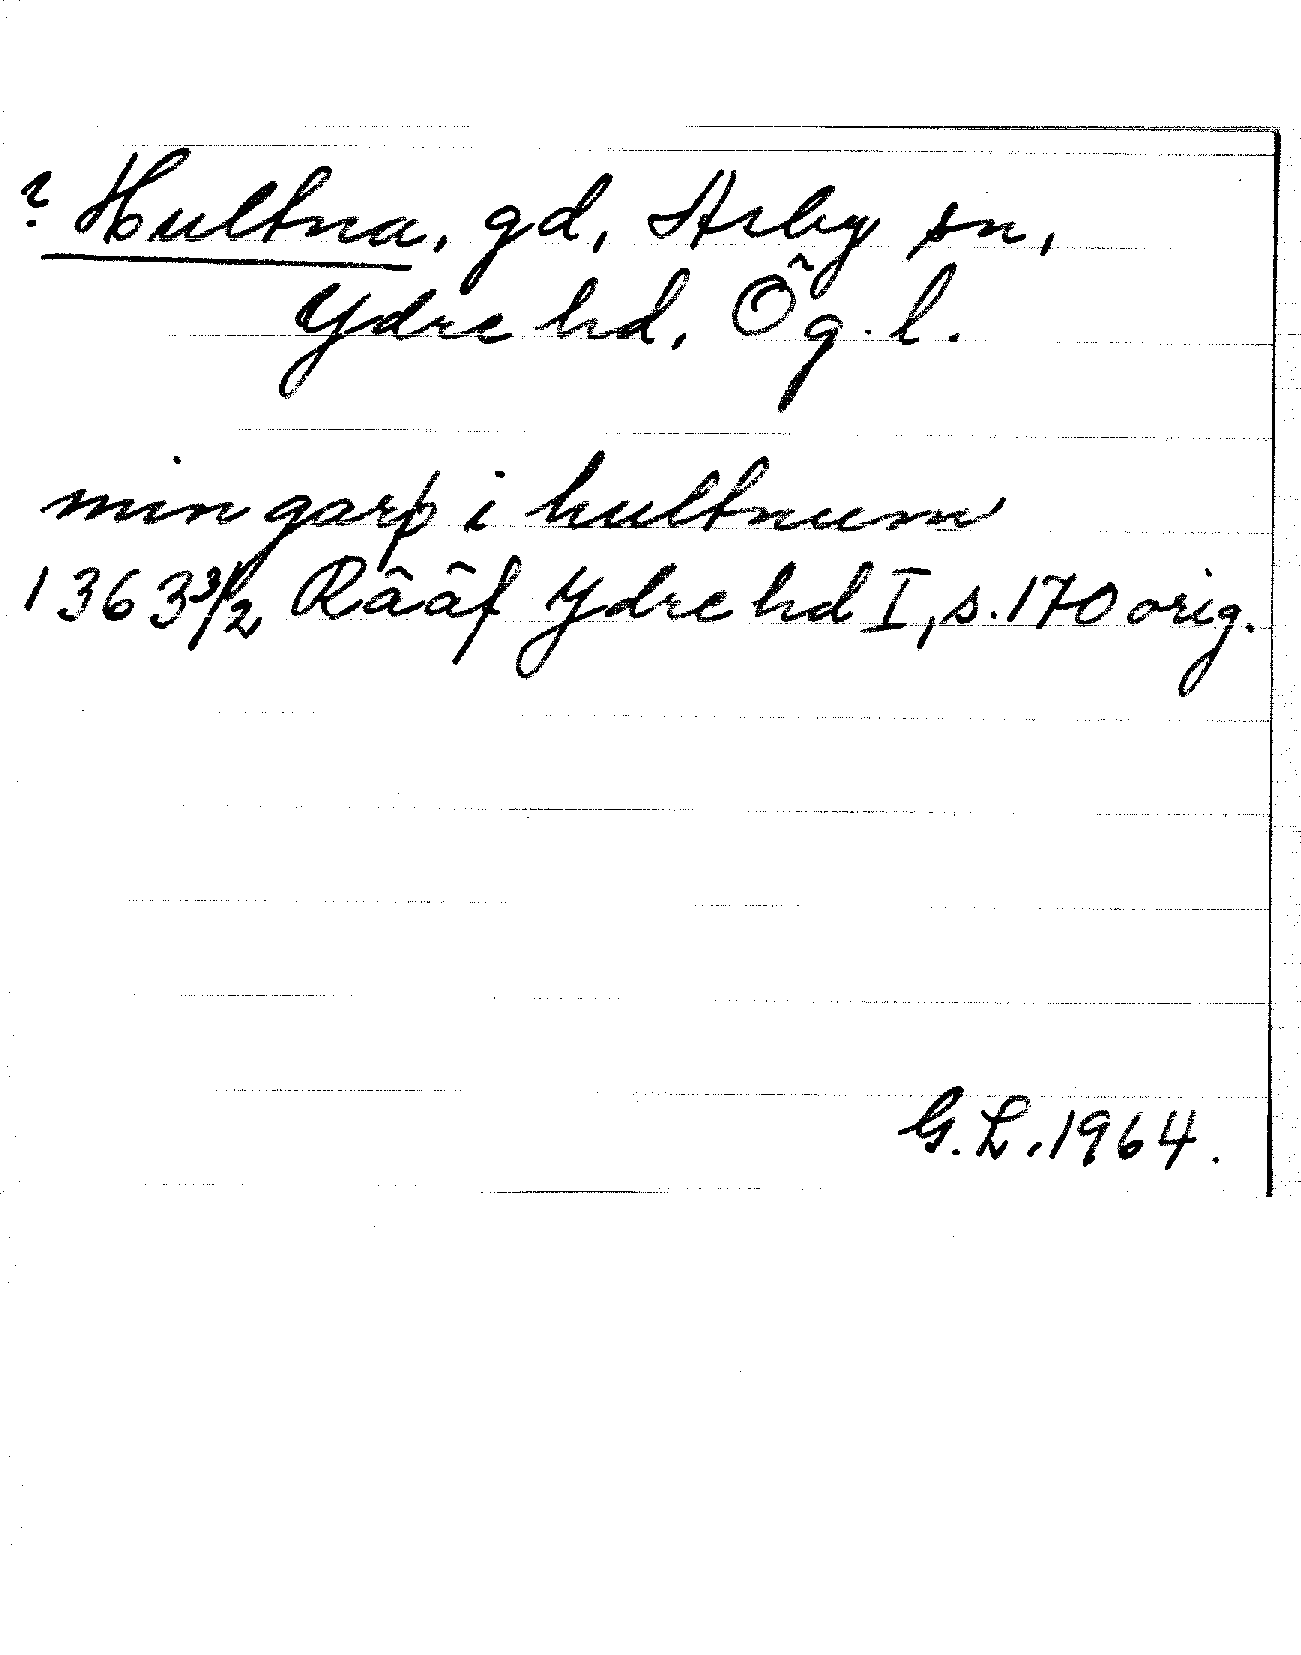 ? Hultna, gd, Asby sn,
Ydre hd, Ög. l.
min garþ i hultnum
1363 3/2 Rääf Ydre hd I, s. 170 orig.
G. L. 1964.